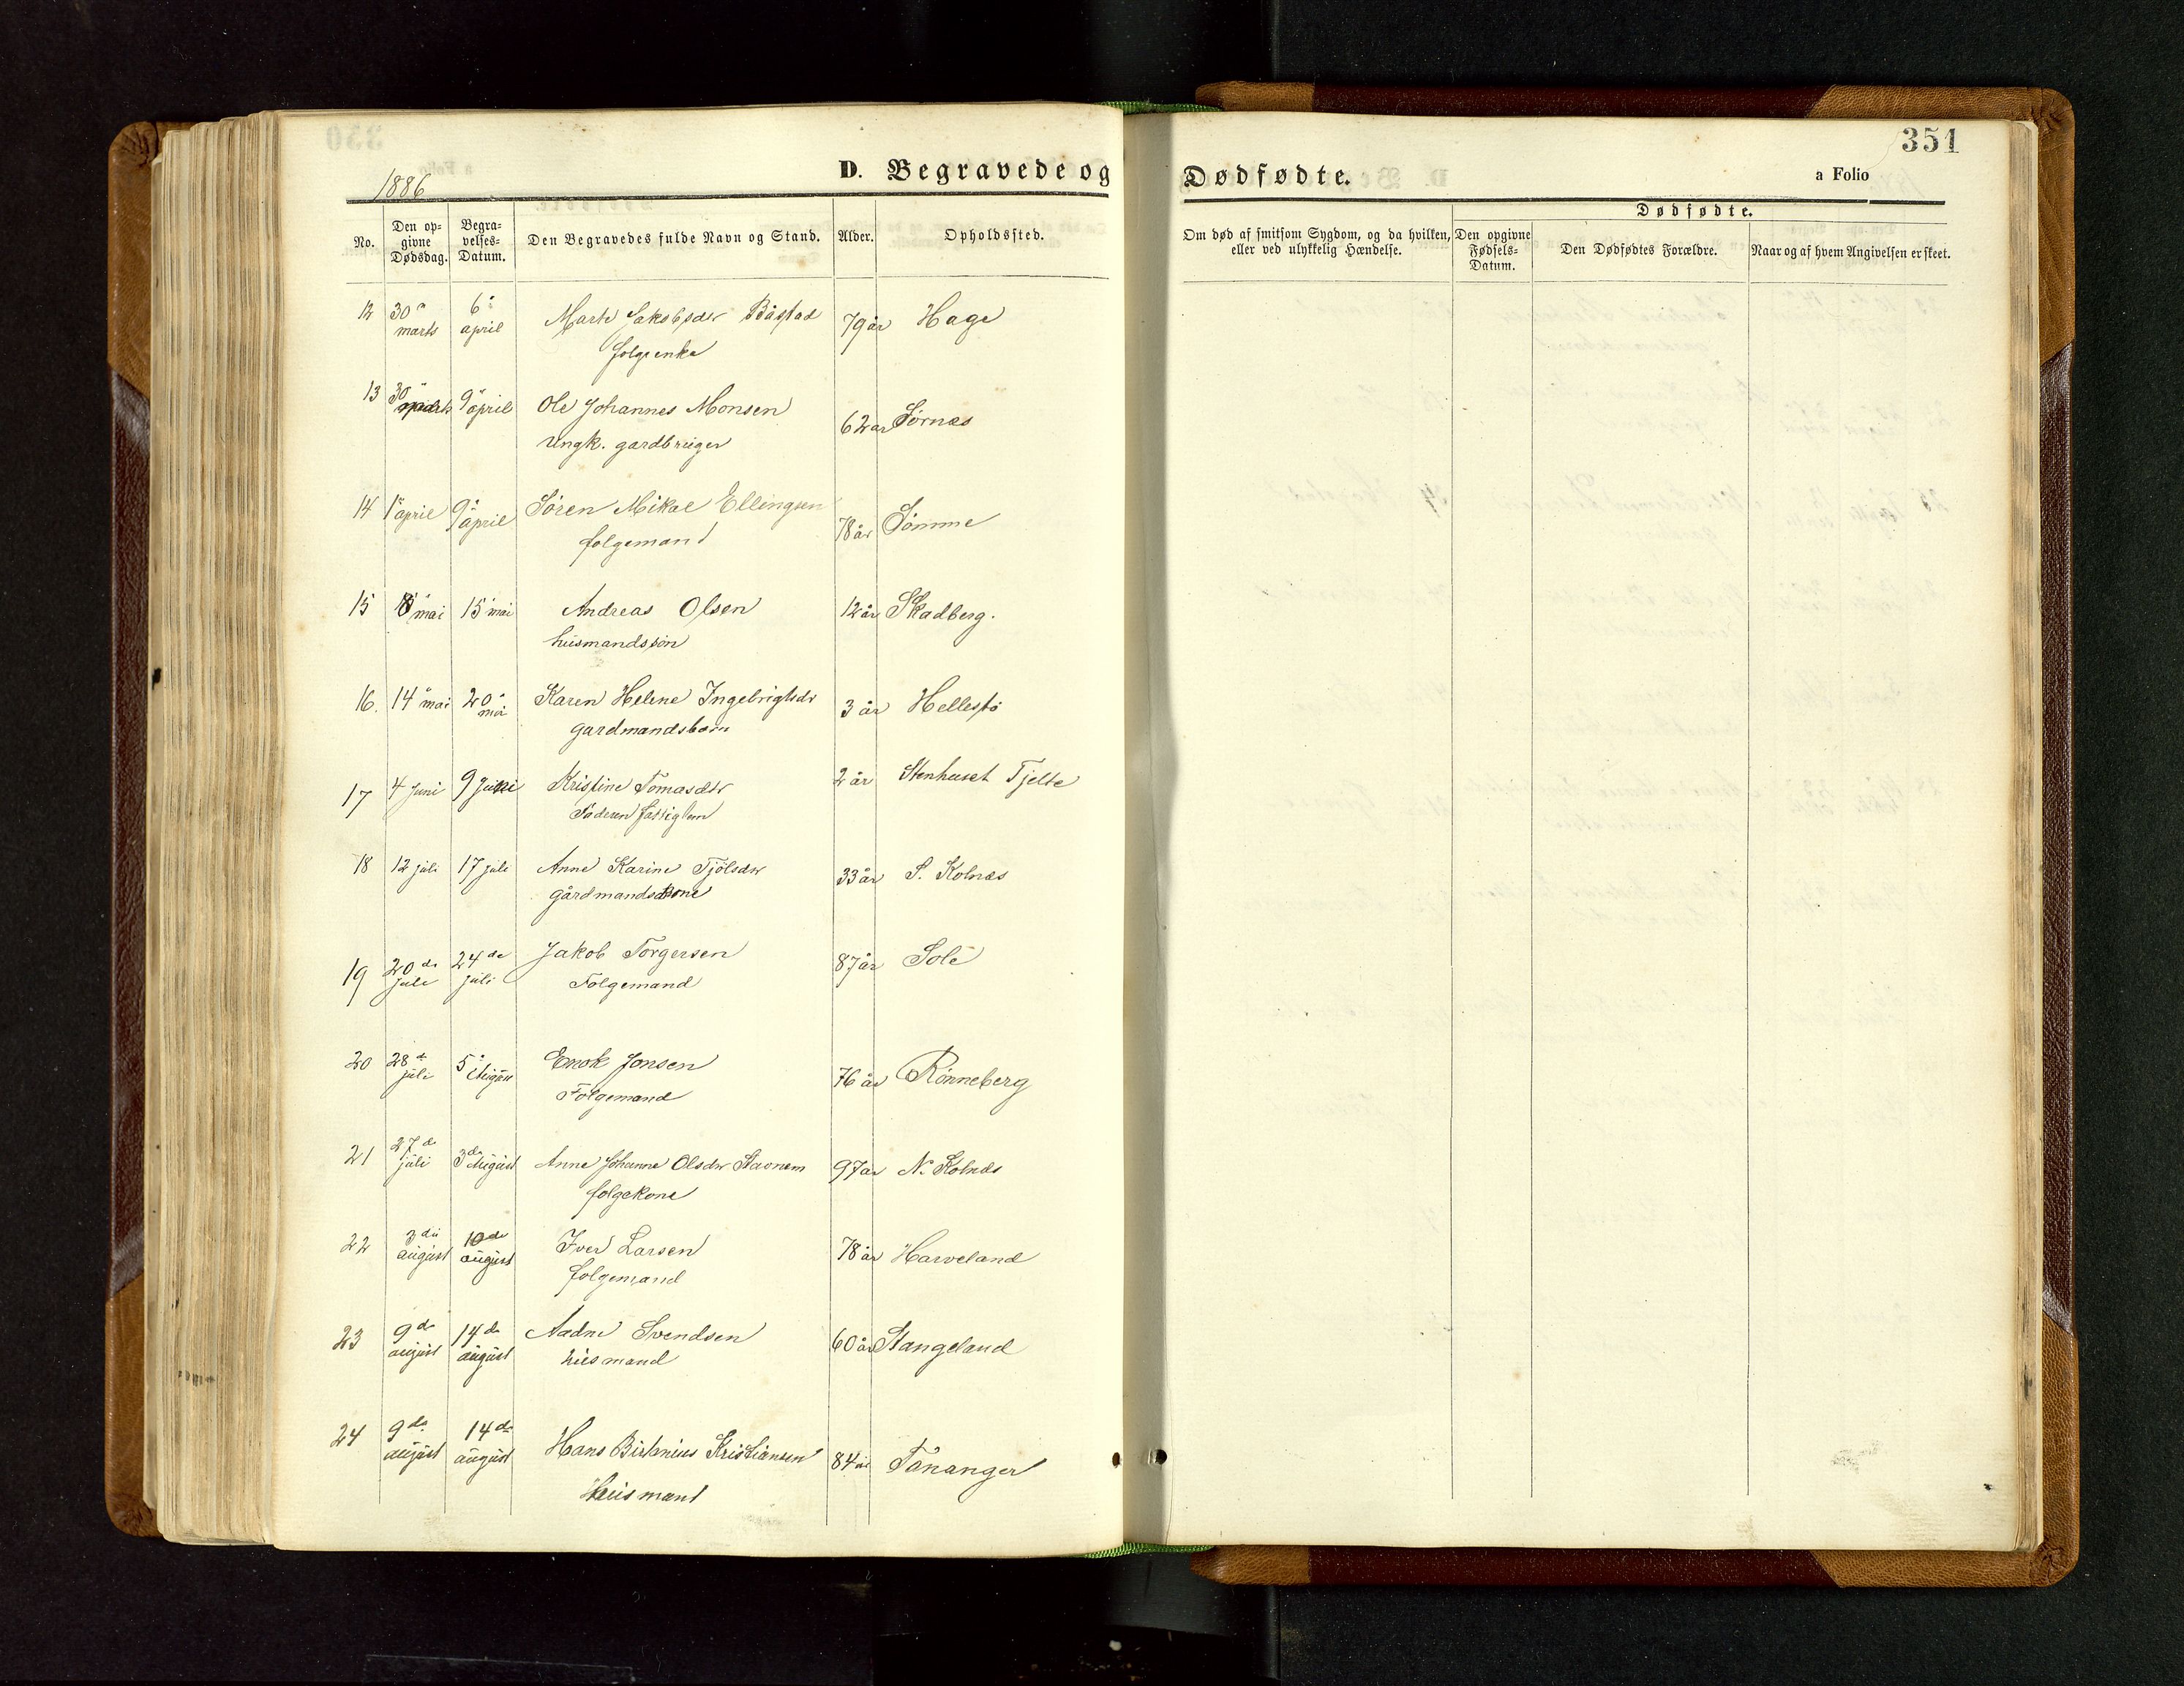 351
1886
D. Begravede og Dødfødte.
a Folio
No.
Den opgivne Dødsdag.
Begravelses-Datum.
Den Begravedes fulde Navn og Stand.
Alder.
Opholdssted.
Om død af smitsom Sygdom, og da hvilken, eller ved ulykkelig Hændelse.
Dødfødte.
Den opgivne Fødsels-Datum.
Den Dødfødtes Forældre.
Naar og af hvem Angivelsen er skeet.
12 30 marts 6 april Marte Jakobsdtr Båstad 79 år Haga
folgeenke
13 30 marts 9 april Ole Johannes Monsen 62 ar Sörnes
Ungk. gardbruger
14 1 april 9 april Sören Mikal Ellingsen 78 år Sömme
folgemand
15 8 mai 15 mai Andreas Olsen 12 år Skadberg.
husmandssön
16. 14 mai 20 mai Karen Helene Ingebrigtsdr 3 år Hellestö
gardmandsbarn
17 4 juni 9 juni Kristine Tomasdtr 2 år Stenhuset Tjelte
18 12 juli 17 juli Anne Karine Tjölsdtr 33 år S. Kolnes
gårdmandskone
19 20de juli 24de juli Jakob Torgersen 87 år Sole
Folgemand
20 28d juli 5 August Enok Jonsen 76 år Rönneberg
Folgemand
21 27d juli 3de August Anne Johanne Olsdtr Stavnem 97 ar N. Kolnes
folgekone
22 3die august 10de august Iver Larsen 78 år Harveland
folgemand
23 9de august 14de august Aadne Svendsen 60 år Stangeland
husmand
24 9de august 14de august Hans Kristiansen 84 år Tananger
Husmand